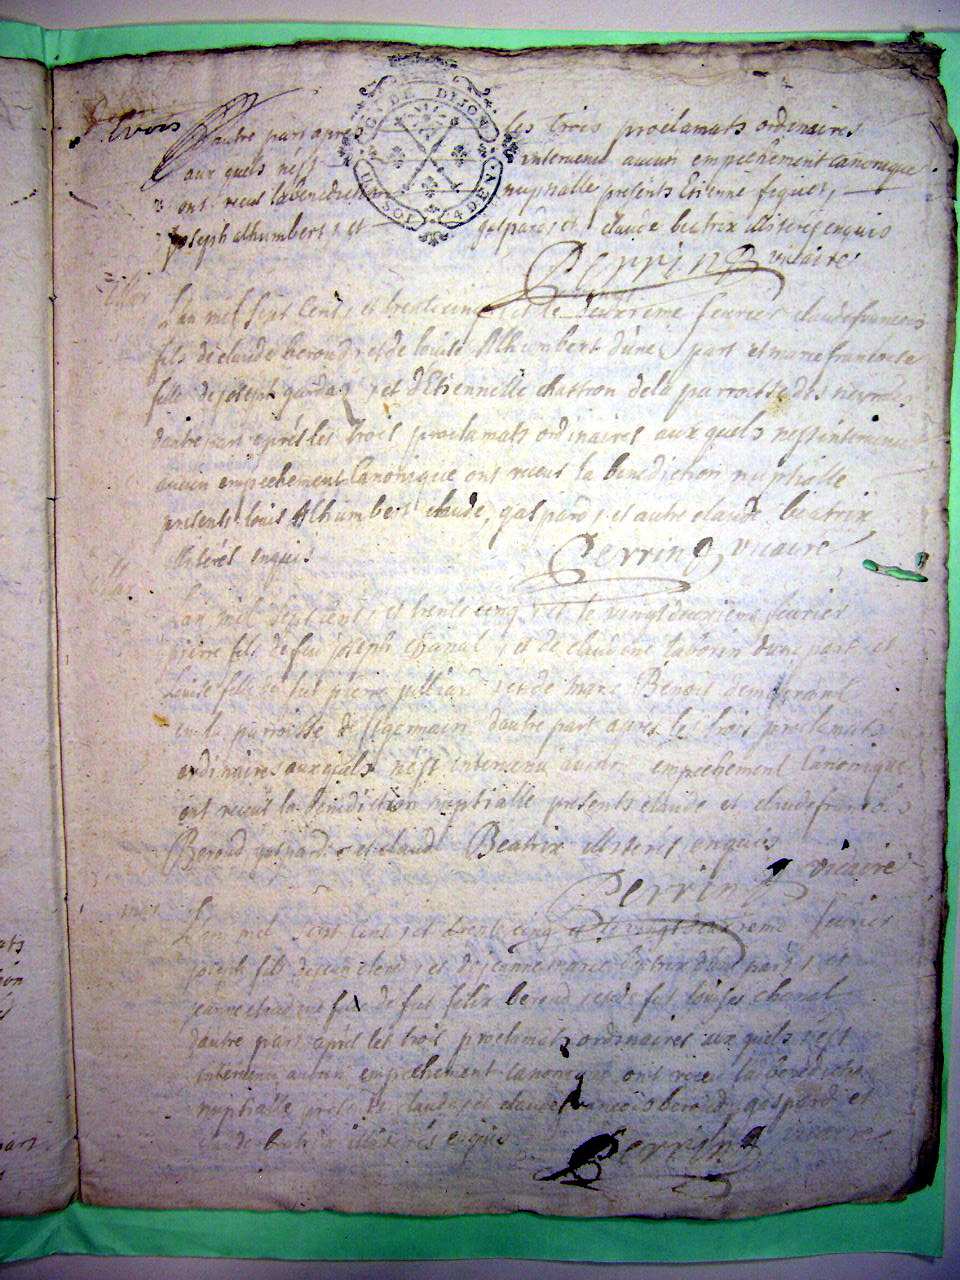 trois
G. DE DIJON
UN SOL 4 DE.
dautre part apres les trois proclamats ordinaires
aux quels nest intervenu aucun empechement canonique
ont receus la benediction nuptialle presents Etienne
joseph alhumbert, et gaspard, et claude beatrix illiterés enquis
Perrin vicaire
Lan mel sept cents, et trente cinq, et le deuxieme fevrier claude francois
fils de claude beroud, et de louise Alhumbert dune part et marie francoise
fille de joseph et d'Etiennette chatron de la parroisse des
dautre part aprés les trois proclamats ordinaires aux quels nest intervenu
aucun empechement Canonique ont receus la benediction nuptialle
presents louis Alhumbert claude, gaspard, et autre claude beatrix
illiterés enquis Perrin vicaire
Lan mel sept cents, et trente cinq, et le vingt deuxieme fevrier
pierre fils de feu joseph Chanal, et de claudine taborin dune part et
Louise fille de fut pierre julliard, et de marie Benoit demeurant
en la parroisse de St germain dautre part aprés les trois proclamats
ordinaires auxquels nest intervenu aucun empechement Canonique
ont receus la benediction nuptialle presents claude et claude francois
Beroud gaspard, et claude Beatrix illiterés enquis
Perrin vicaire
Lan mel sept cent, et trente cinq et le vingt deuxieme fevrier
joseph fils de et de jeanne marie beatrix dune part, et
jeanne claudine fille de fut felix beroud, et de fut louise Chanal
dautre part aprés les trois proclamats ordinaires aux quels nest
intervenu aucun empechement canonique ont receu la benediction
nuptialle presents claude, et claude francois beroud, gaspard et
claude beatrix illiterés enquis Perrin vicaire